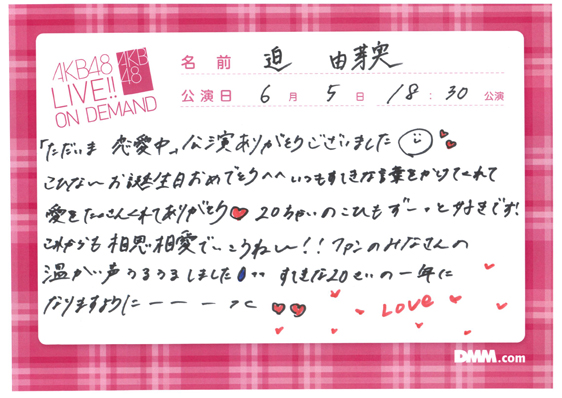 AKB48
LIVE!!
ON DEMAND
AKB
48
名前 迫 由芽実
公演日 6月5日 18:30 公演
「ただいま 恋愛中」公演ありがとうございました
こひなーお誕生日おめでとう いつもすてきな言葉をかけてくれて
愛をたっくさんくれてありがとう 20ちゃいのこひもずーっとすきです!
これからも相思相愛でいこうねー!!ファンのみなさんの
温かい声うるうるしました すてきな20せいの一年に
なりますようにーーーっと
Love
DMM.com